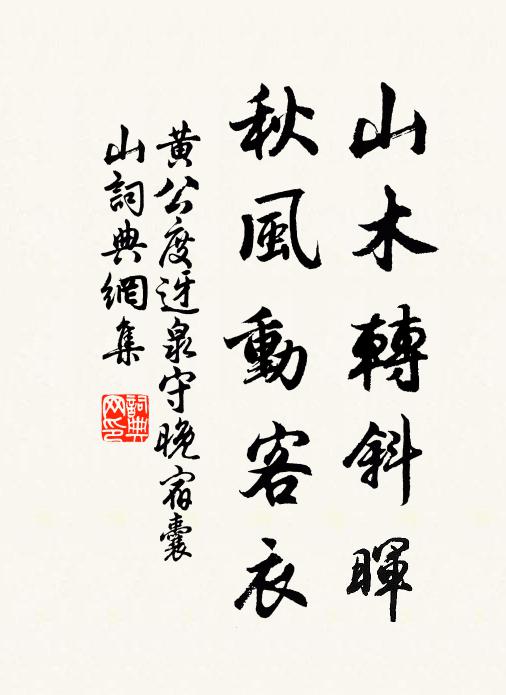 山木轉斜暉
秋風動客衣
黃公度迓泉守晚宿囊
山詞典網集
詞典
网印